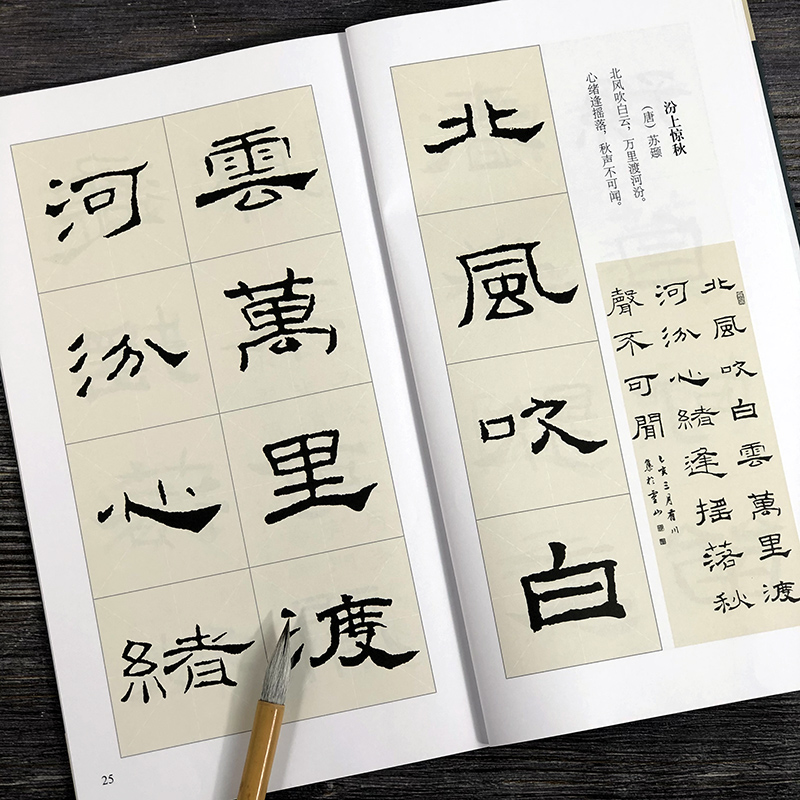 汾上惊秋
（唐）苏颋
北风吹白云，万里渡河汾。
心绪逢摇落，秋声不可闻。
北風吹白雲萬里渡
河汾心緒逢摇落秋
聲不可聞
亥三月青川
北風吹白
雲萬里渡
河汾心緒
25